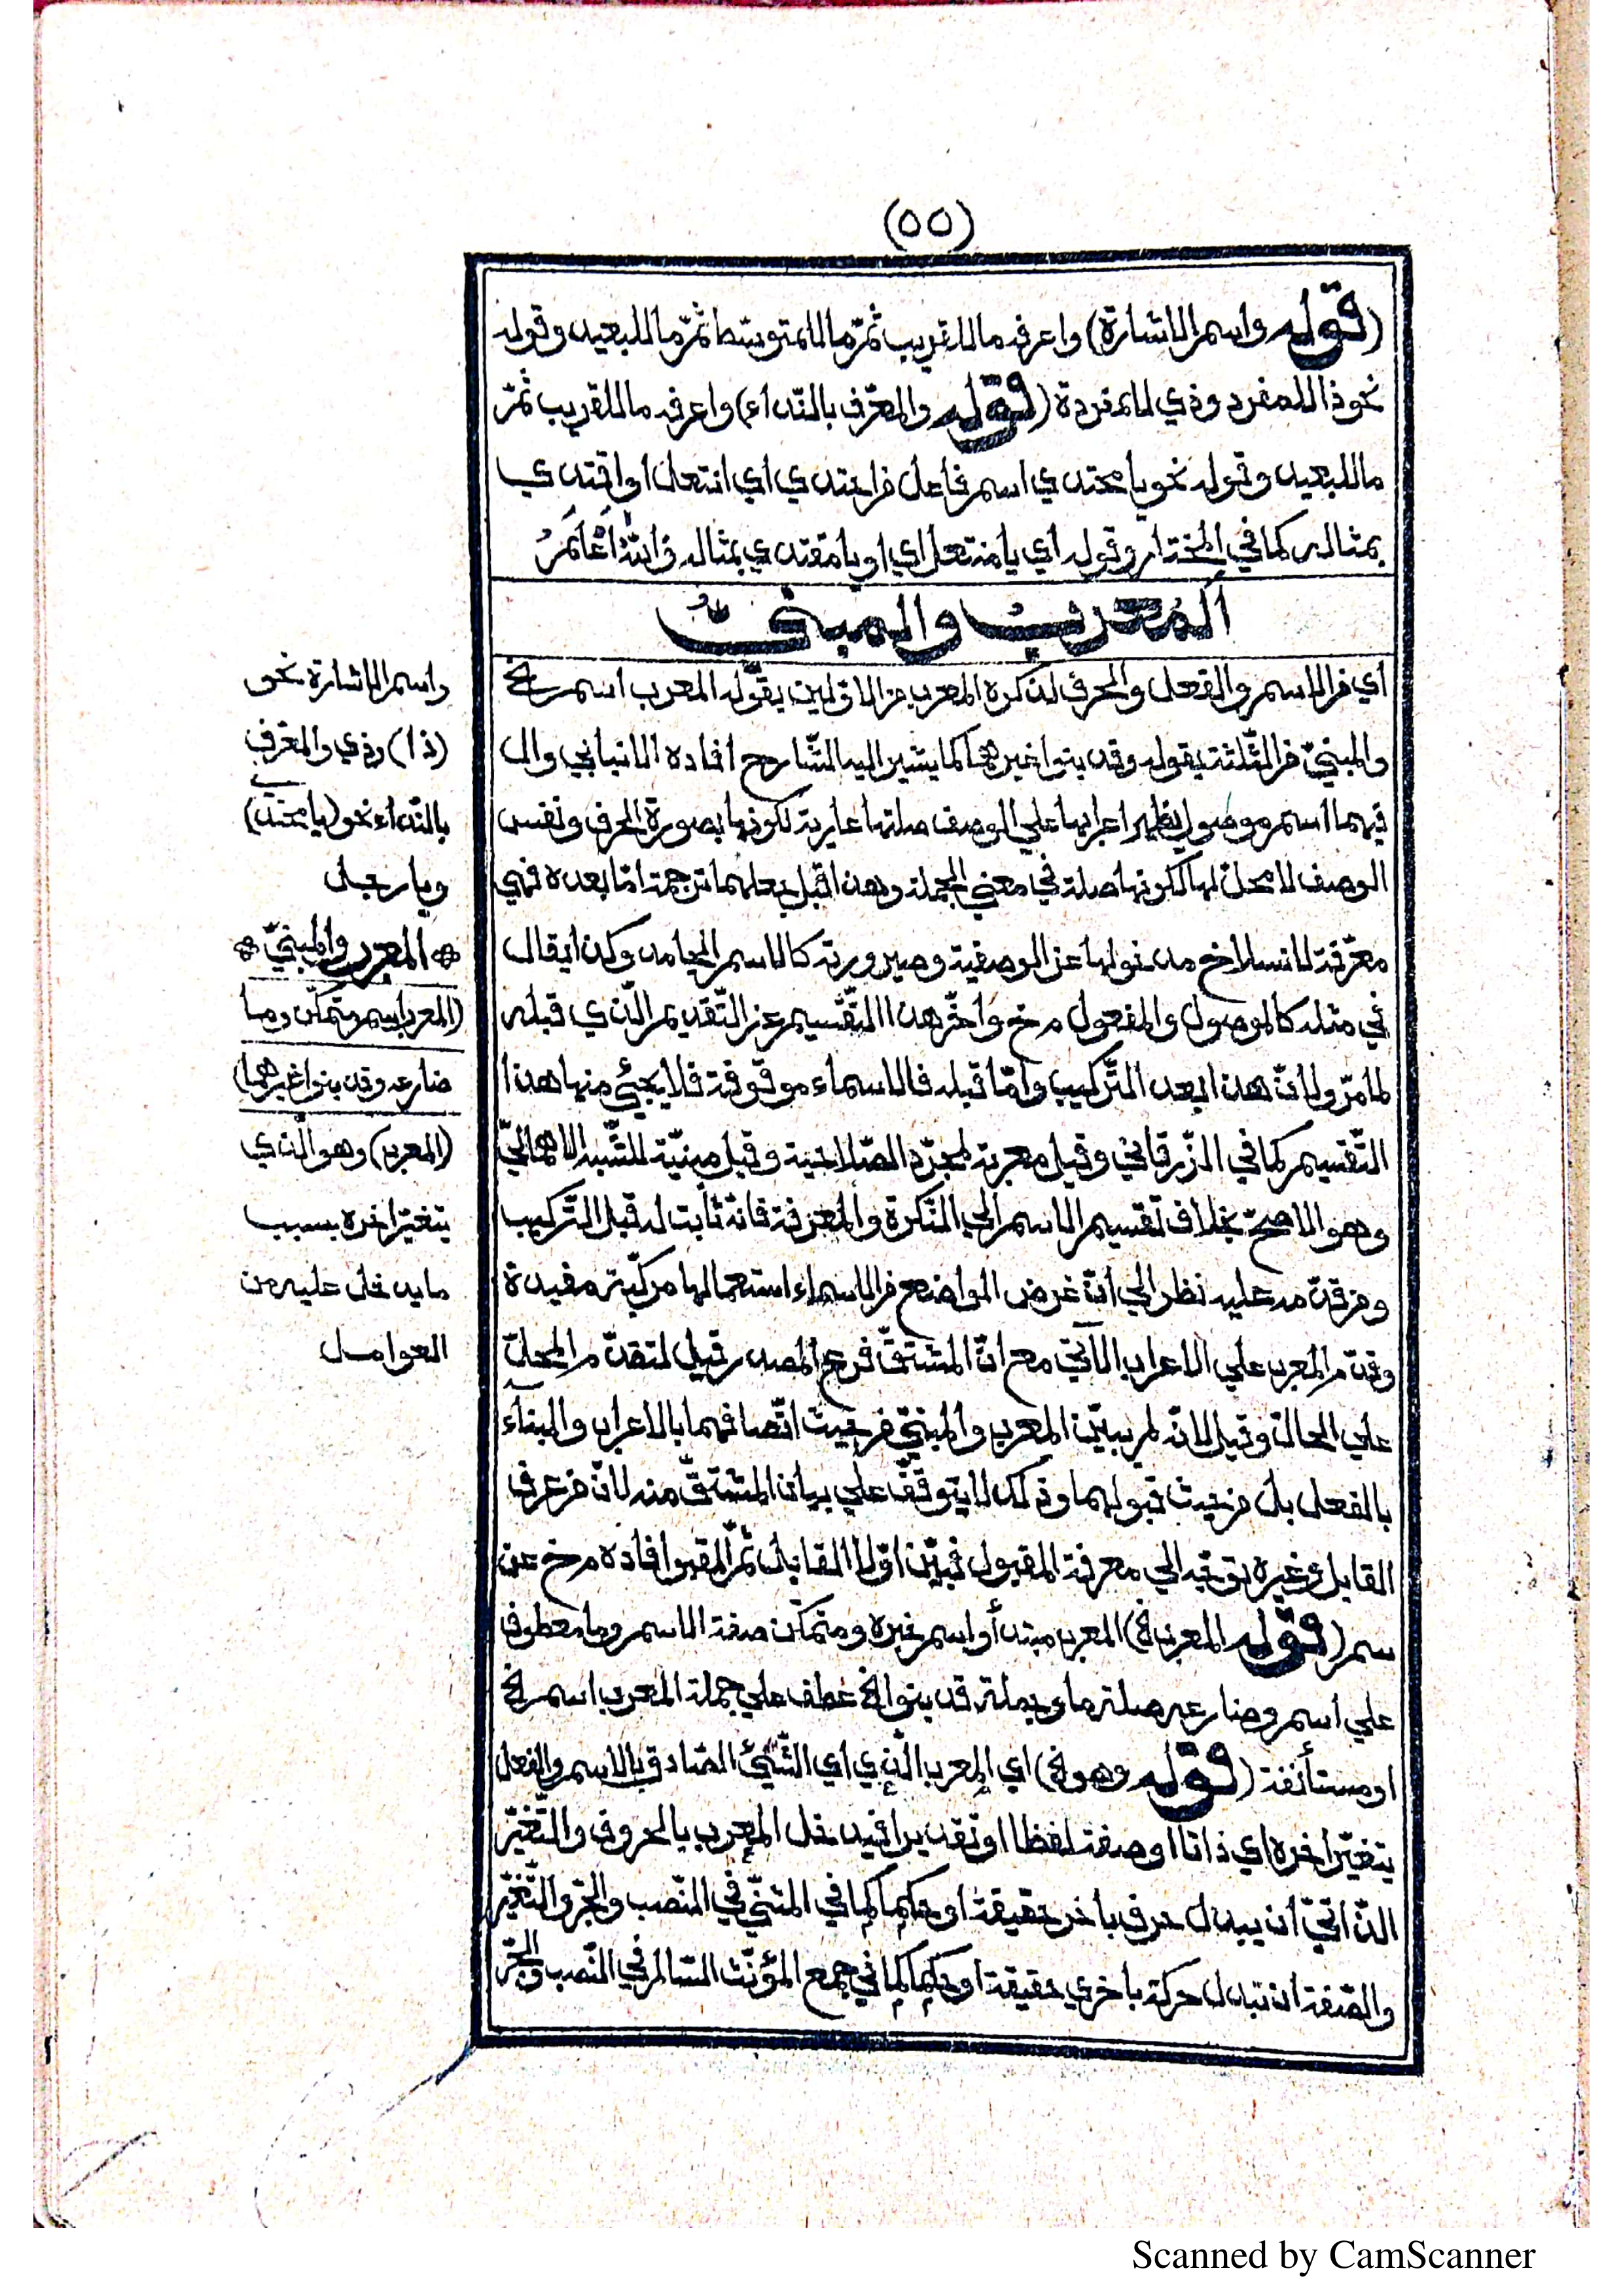 (٥٥)
(قوله واسم الاشارة) واعرفه ما للقريب ثمّ ما للمتوسّط ثمّ ما للبعيد وقوله
نحو ذا للمفرد وذي للمفردة (قوله والمعرّف بالنّداء) واعرفه ما للقريب ثمّ
ما للبعيد وقوله نحو يا محتدي اسم فاعل من احتدي اي انتعل او اقتدي
بمثاله كما في المختار وقوله اي يا منتعل اي او يا مقتدي بمثاله والله اعلم
المُعرب والمبنيّ
أي من الاسم والفعل والحرف لذكره المعرب من الاوّلين بقوله المعرب اسم الخ
والمبنيّ من الثّلثة بقوله وقد بنوا غيرهما كما يشير اليه الشّارح افاده الانبابي وال
فيهما اسم موصول يظهر اعرابها علي الوصف صلتها عارية لكونها بصورة الحرف ونفس
الوصف لا محلّ لها لكونها صلة في معني الجملة وهذا قبل جعلهما ترجمة امّا بعده فهي
معرّفة لانسلاخ مدخولها عن الوصفية وصيرورته كالاسم الجامد وكذا يقال
في مثله كالموصول والمفعول م خ وأخّر هذا التّقسيم عن التّقديم الّذي قبله
لما مرّ ولانّ هذا بعد التّركيب وامّا قبله فالاسماء موقوفة فلا يجيء منها هذا
التّقسيم كما في الزّرقاني وقيل معربة لمجرّد الصّلاحية وقيل مبنيّة للشّبه الاهماليّ
وهو الاصحّ بخلاف تقسيم الاسم الي النّكرة والمعرفة فانّه ثابت له قبل التّركيب
ومن قدّمه عليه نظر الي انّ غرض الواضع من الاسماء استعمالها مركّبة مفيدة
وقدّم المعرب علي الاعراب الآتي مع انّ المشتقّ فرع المصدر قيل لتقدّم المحلّ
علي الحالّ وقيل لانّه لم يبيّن المعرب والمبنيّ من حيث اتّصافهما بالاعراب والبنآء
بالفعل بل من حيث قبولهما وذلك لا يتوقّف علي بيان المشتقّ منه لانّ من عرف
القابل وغيره يتوجّه الي معرفة المقبول فبيّن اوّلا القابل ثمّ المقبول افاده م خ عن
سم (قوله المعرب الخ) المعرب مبتدأ واسم خبره ومتمكّن صفة الاسم وما معطوف
علي اسم وضارعه صلة ما وجملة قد بنوا الخ عطف علي جملة المعرب اسم الخ
او مستأنفة (قوله وهو الخ) اي المعرب الّذي اي الشّيئ الصّادق بالاسم والفعل
يتغيّر اخره اي ذاتا او صفة لفظا او تقديرا فيدخل المعرب بالحروف والتّغيّر
الذّاتيّ ان يبدل حرف باخر حقيقة او حكما كما في المثنّي في النّصب والجرّ والتّغيّر
والصّفة ان تبدل حركة باخري حقيقة او حكما كما في جمع المؤنّث السّالم في النّصب والجرّ
واسم الاشارة نحو
(ذا) وذي والمعرّف
بالنّداء نحو (يا محتدي)
ويا رجل
* المعرب والمبنيّ *
(المعرب اسم متمكّن وما
ضارعه وقد بنوا غيرهما)
(المعرب) وهو الّذي
يتغيّر اخره بسبب
ما يدخل عليه من
العوامل
Scanned by CamScanner